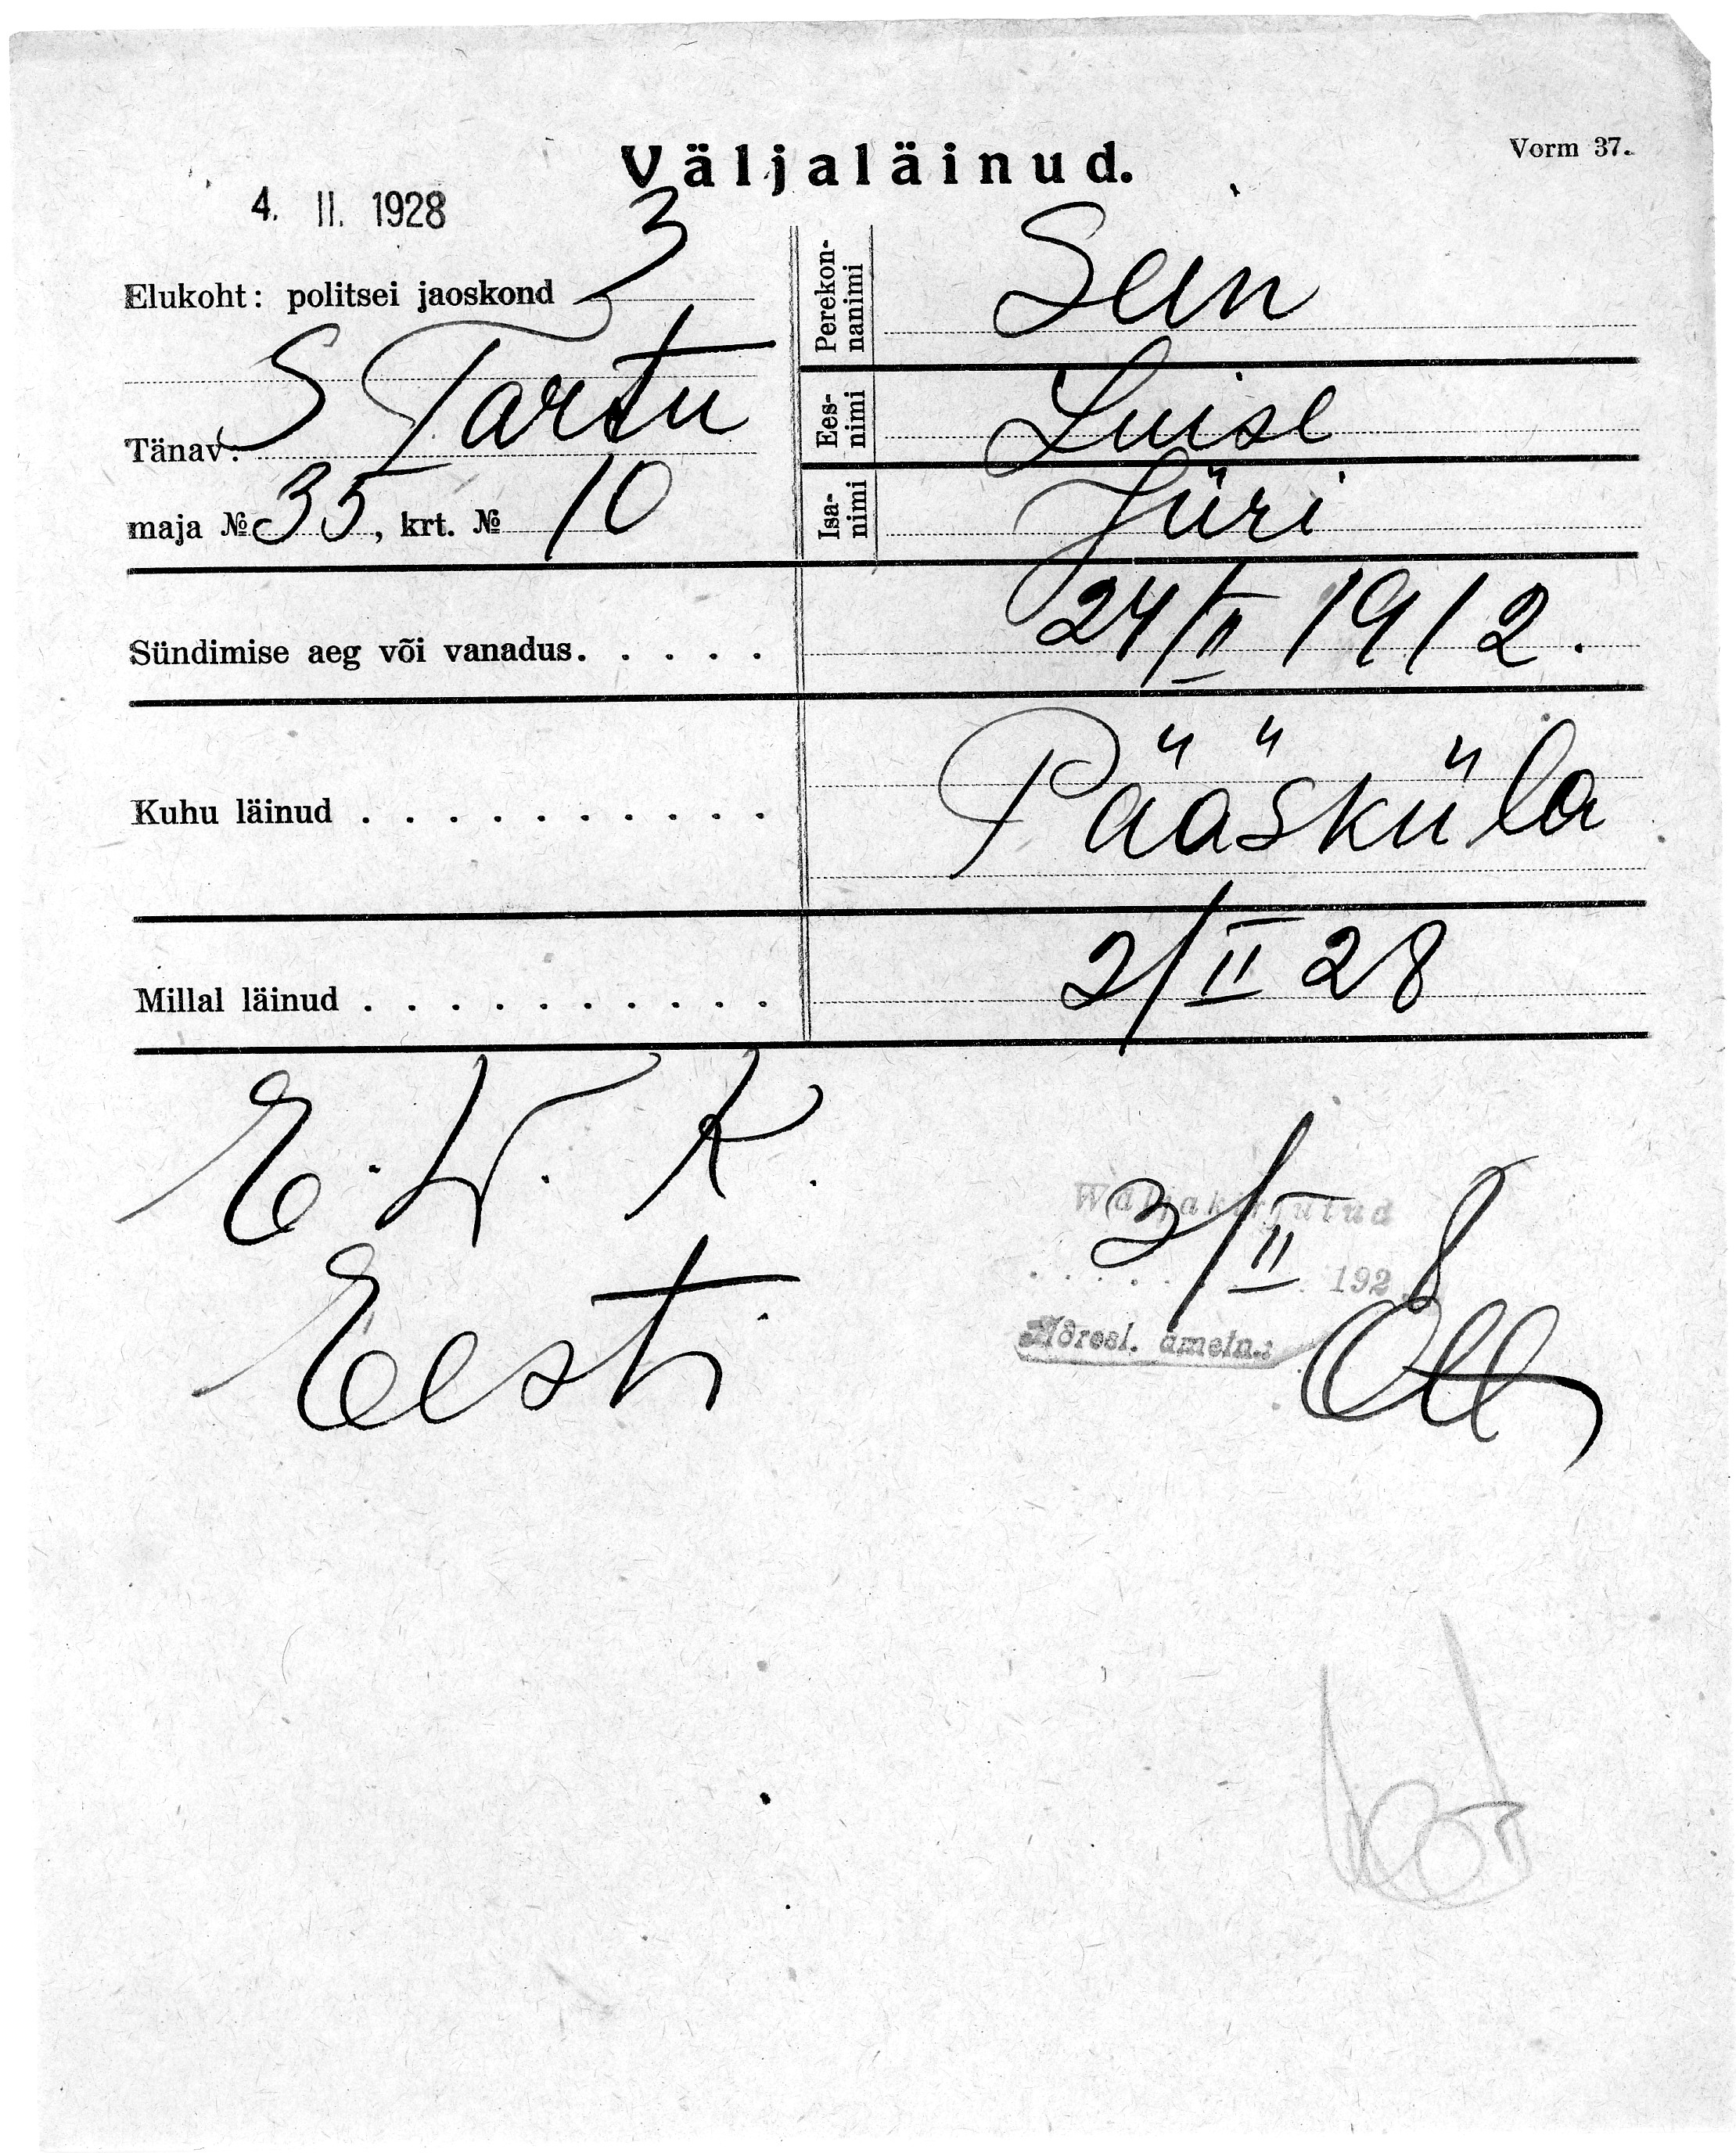 Väljaläinud.
Vorm 37.
4. II. 1928
Elukoht: politsei jaoskond 3
S Tartu
Tänav:
maja № 35, krt. № 10
Perekonnanimi Sein
Eesnimi Luise
Isanimi Jüri
Sündimise aeg või vanadus. . . . . 24/II 1912.
Kuhu läinud . . . . . . . . . . Pääsküla
Millal läinud . . . . . . . . . . 2/II 28
E. W. K.
Eesti
Wäljakirjutud
3/II 1928
Adresl. ametn.: